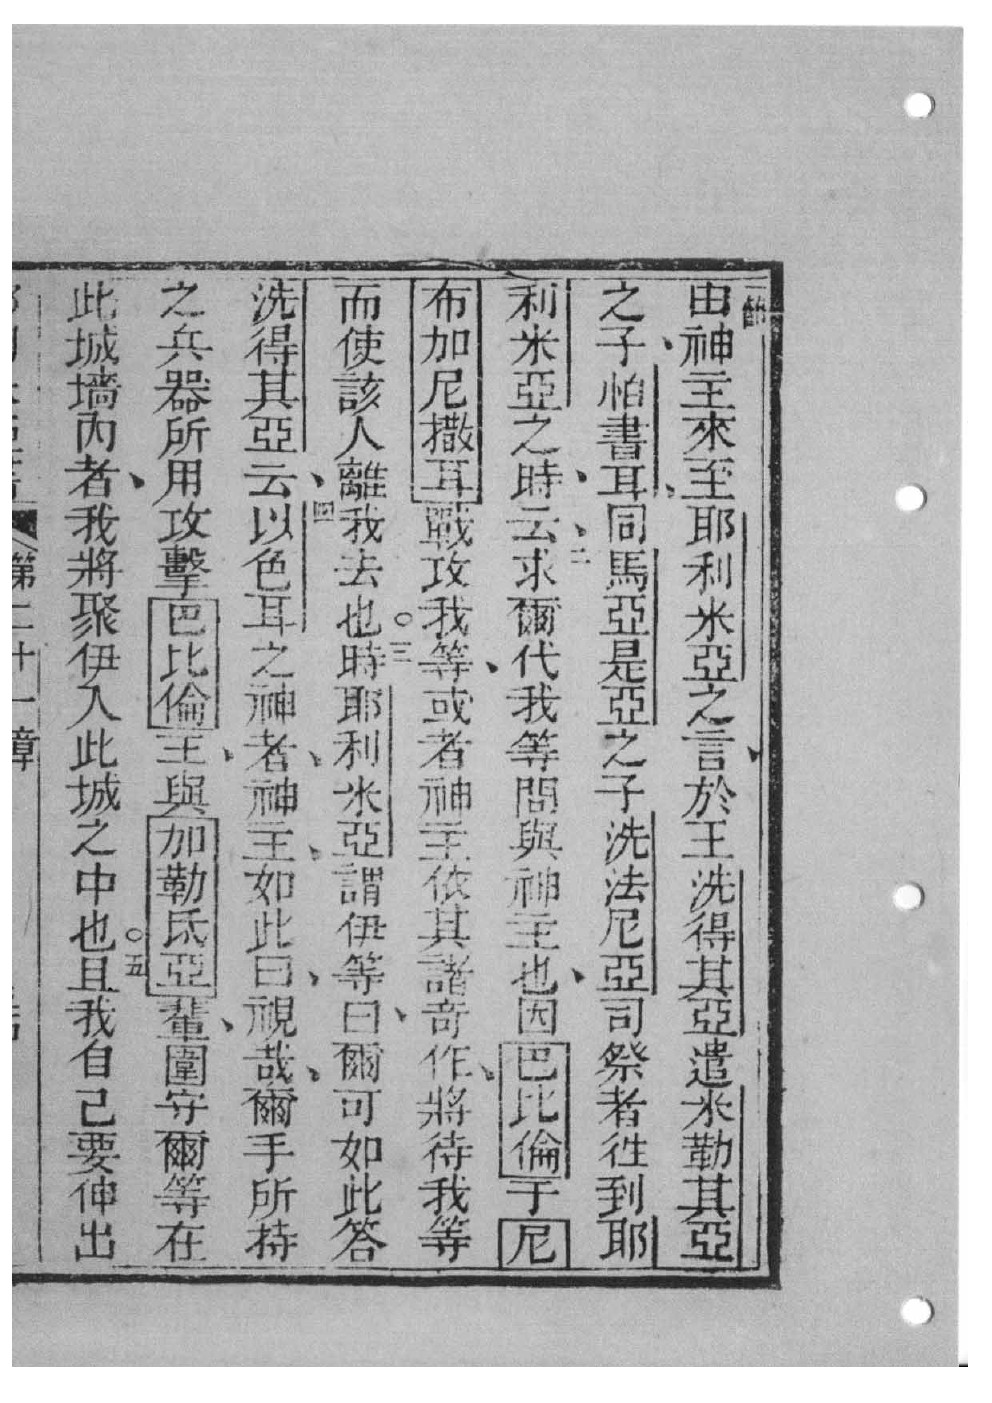 一節
由神主來至耶利米亞之言於王洗得其亞遣米勒其亞
之子、帕書耳、同馬亞是亞之子洗法尼亞司祭者徃到耶
利米亞之時、云、二求爾代我等問與神主也、因巴比倫于尼
布加尼撒耳戰攻我等、或者神主依其諸奇作、將待我等
而使該人離我去也○三時耶利米亞謂伊等曰、爾可如此答
洗得其亞云、四以色耳之神者、神主、如此曰、視哉、爾手所持
之兵器所用攻擊巴比倫王、與加勒氐亞輩、圍守爾等在
此城墻內者、我將聚伊入此城之中也○五且我自己要伸出
第二十一章